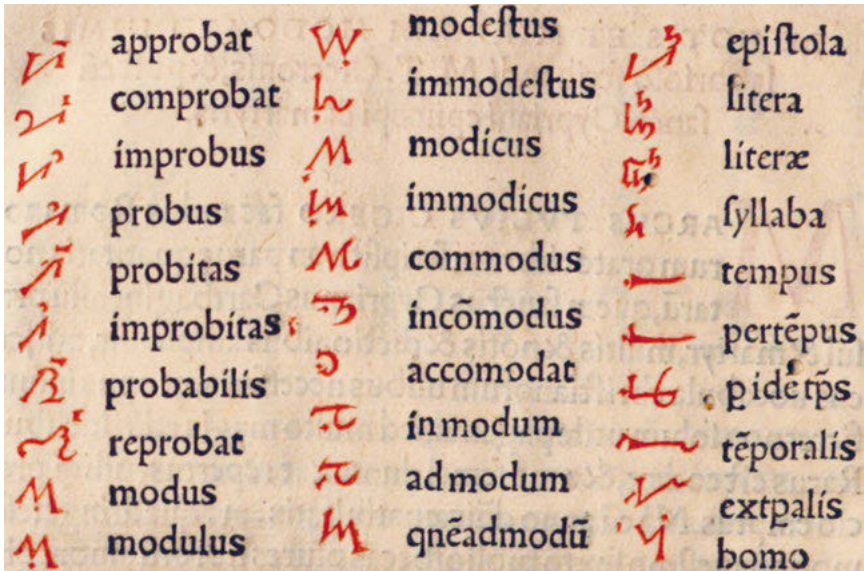 approbat
comprobat
improbus
probus
probitas
improbitas
probabilis
reprobat
modus
modulus
modeſtus
immodeſtus
modicus
immodicus
commodus
incõmodus
accomodat
inmodum
admodum
qnẽadmodũ
epiſtola
litera
literæ
ſyllaba
tempus
pertẽpus
ꝑ idẽ tꝑ̃s
tẽporalis
extꝑalis
homo